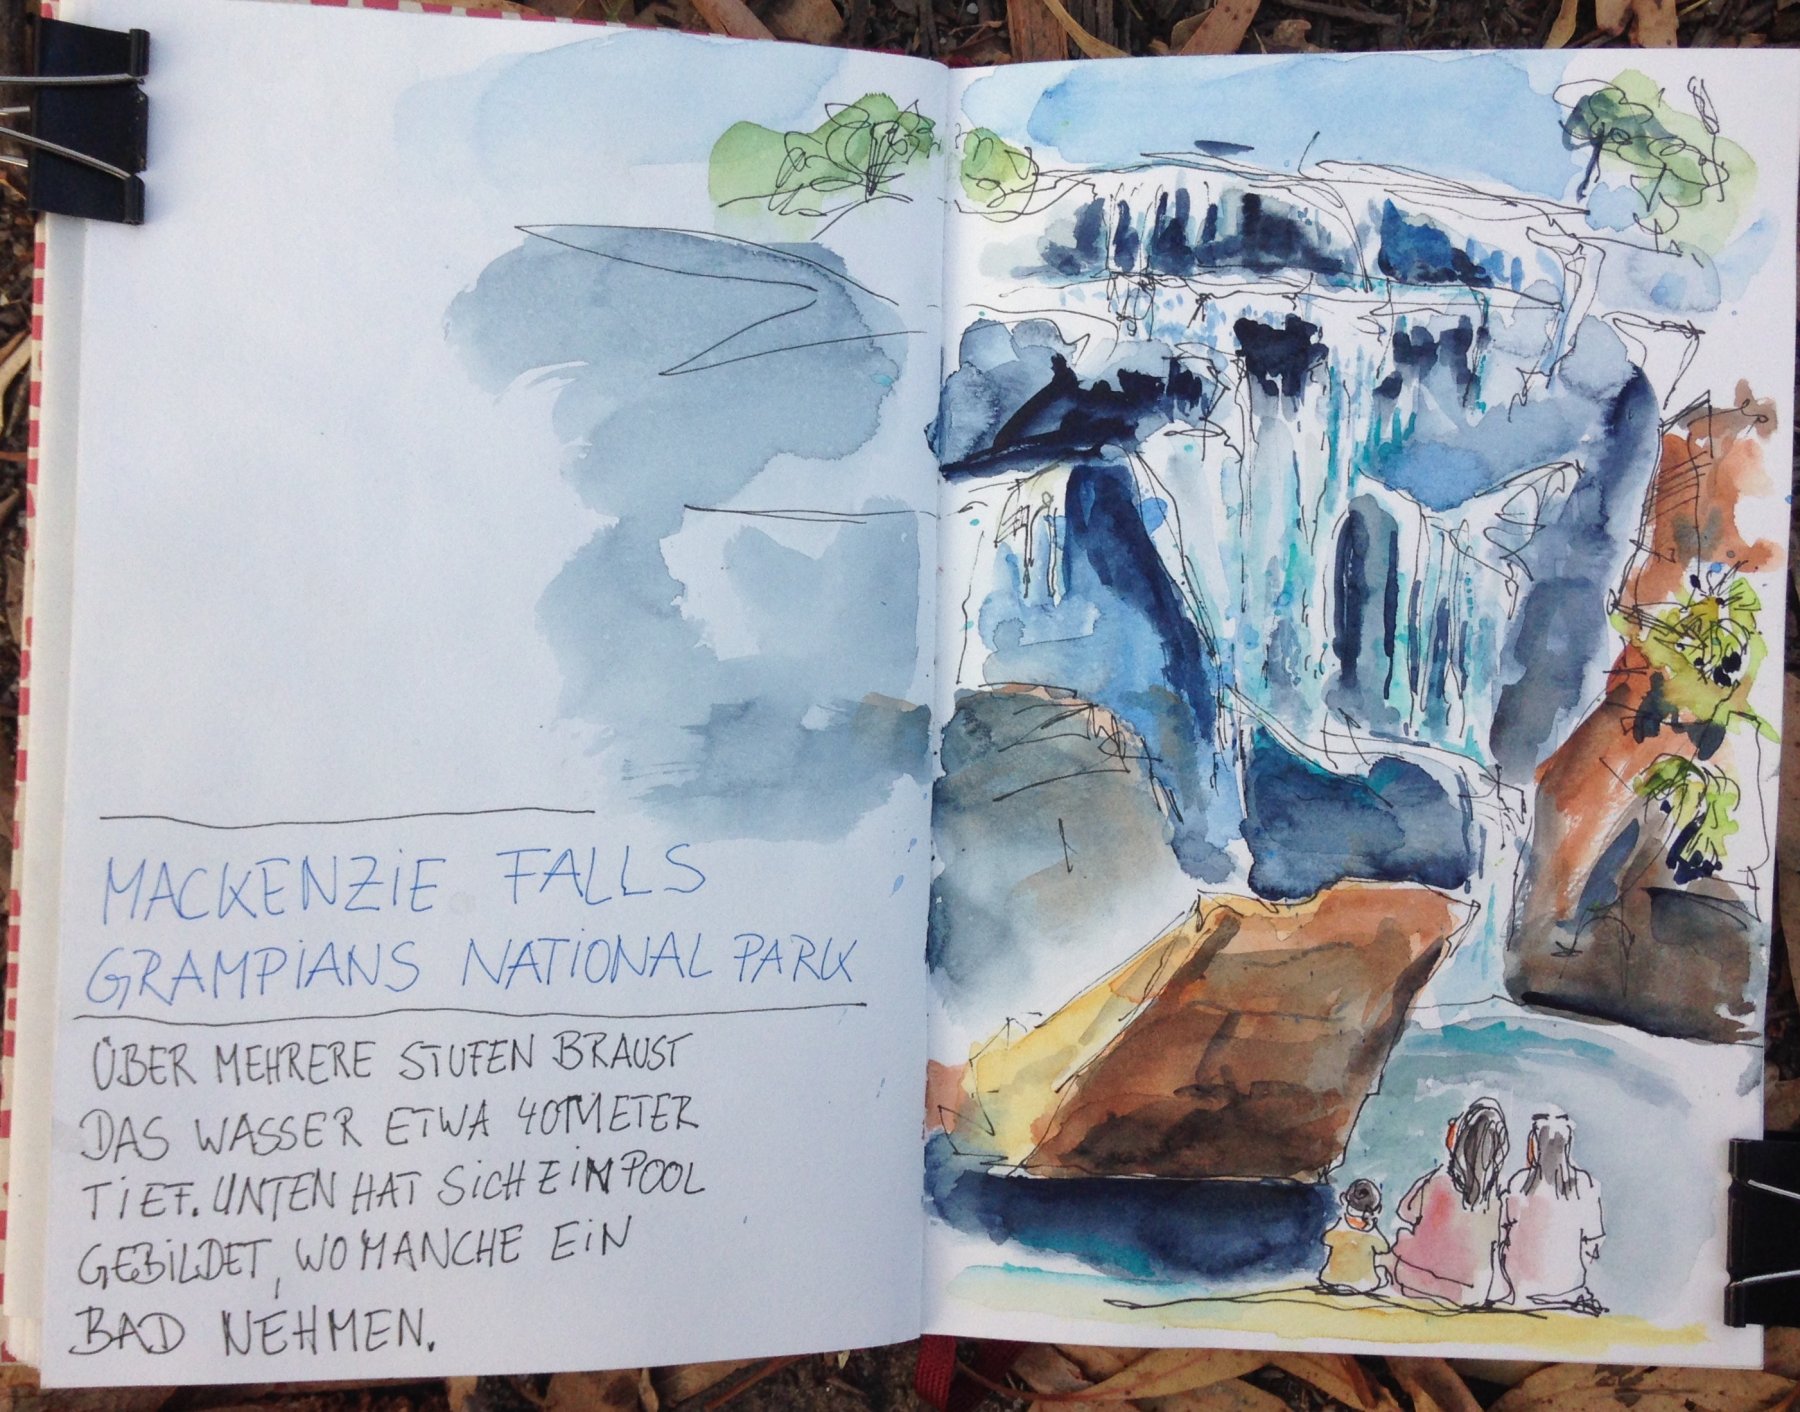 MACKENZiE FALLS
GRAMPiANS NATiONAL PARK
ÜBER MEHRERE STUFEN BRAUST
DAS WASSER ETWA 40METER
TiEF. UNTEN HAT SiCH EiN POOL
GEBiLDET, WO MANCHE EiN
BAD NEHMEN.